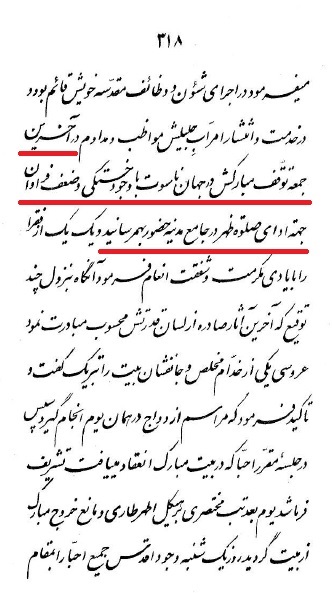 ۳۱۸
میفرمود در اجرای شئون و وظائف مقدسه خویش قائم بود و
در خدمت و انتشار امر اب جلیلش مواظب و مداوم در آخرین
جمعه توقف مبارکش در جهان ناسوت با وجود خستگی و ضعف فراوان
جهة ادای صلوة ظهر در جامع مدینه حضور بهم رسانید و یک یک از فقرا
را بایادی مکرمت و شفقت انعام فرمود آنگاه بنزول چند
توقیع که آخرین آثار صادره از لسان قدرتش محسوب مبادرت نمود
عروسی یکی از خدام مخلص و جانفشان بیت را تبریک گفت و
تأکید فرمود که مراسم ازدواج در همان یوم انجام گیرد سپس
در جلسه مقرر احبا که در بیت مبارک انعقاد مییافت تشریف
فرما شد یوم بعد تب مختصری بر هیکل اطهر طاری و مانع خروج مبارک
از بیت گردید، روز یک شنبه وجود اقدس جمیع احبا را بمقام